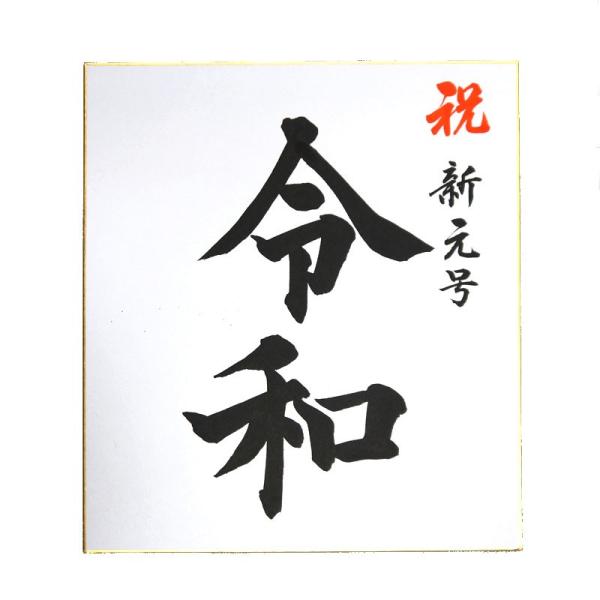 祝 新元号
令和